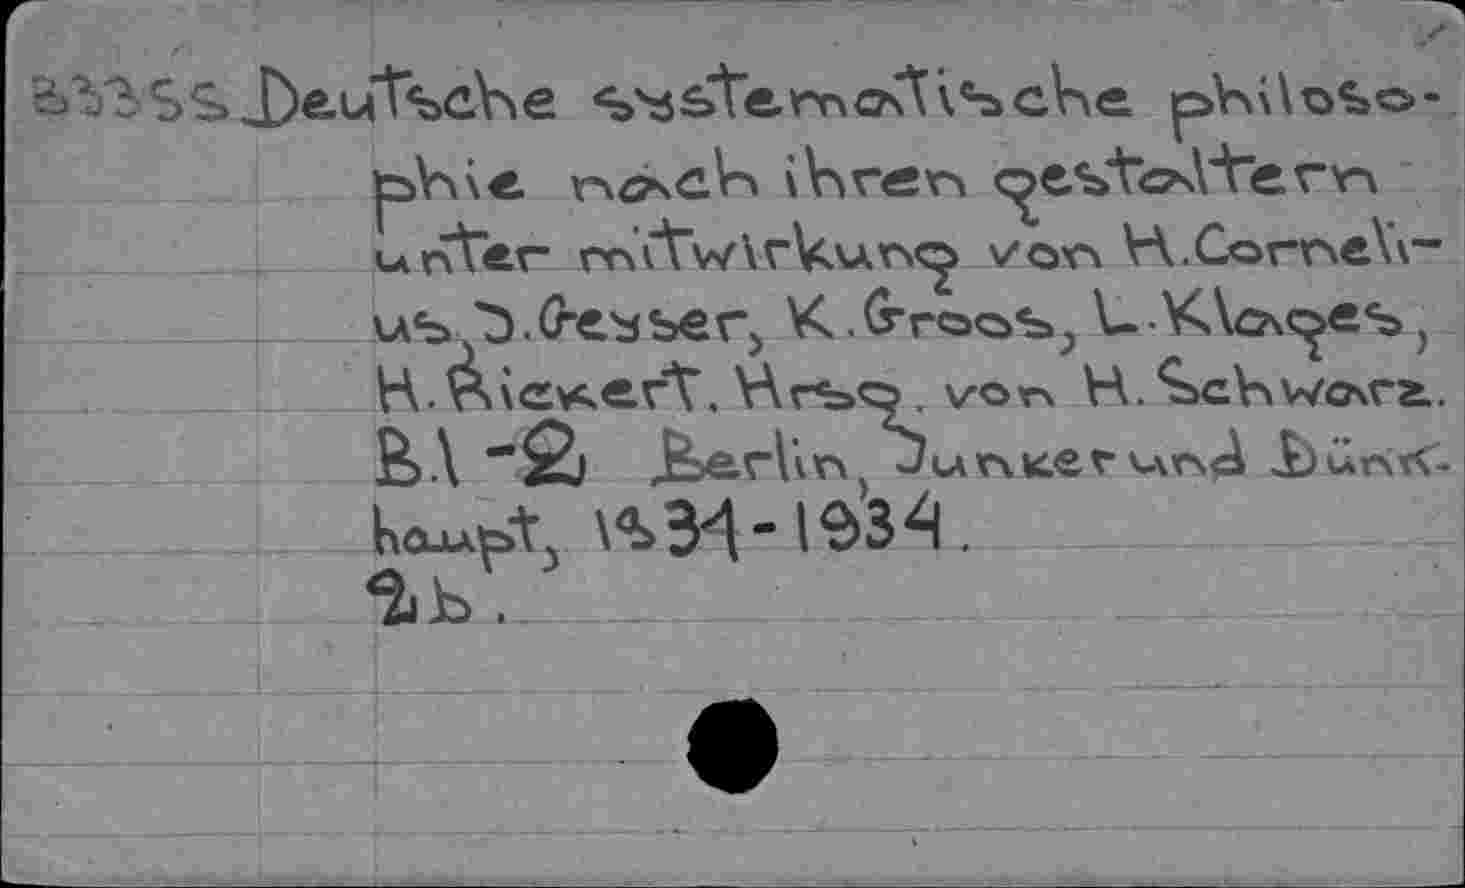 Deutsche systematische philoso-
phie nach ihren gestaltern
unter mitwirkung von H.Corneli-
us, D.Geyser, K.Groos, L.Klages,
H.Rickert. Hrsg. von H. Schwarz.
B.1-2 Berlin, Junker und Dünn-
haupt, 1931-1934.
2b.